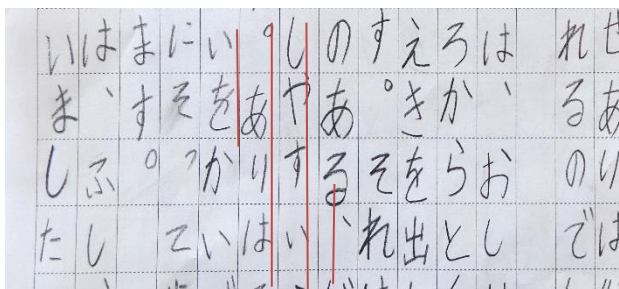 せあリは
れるので
は、おし
ろからと
えきを出
す。それ
のある、
しやすい
。あリは
いをかい
にそって
ます。
は、ぷし
いました